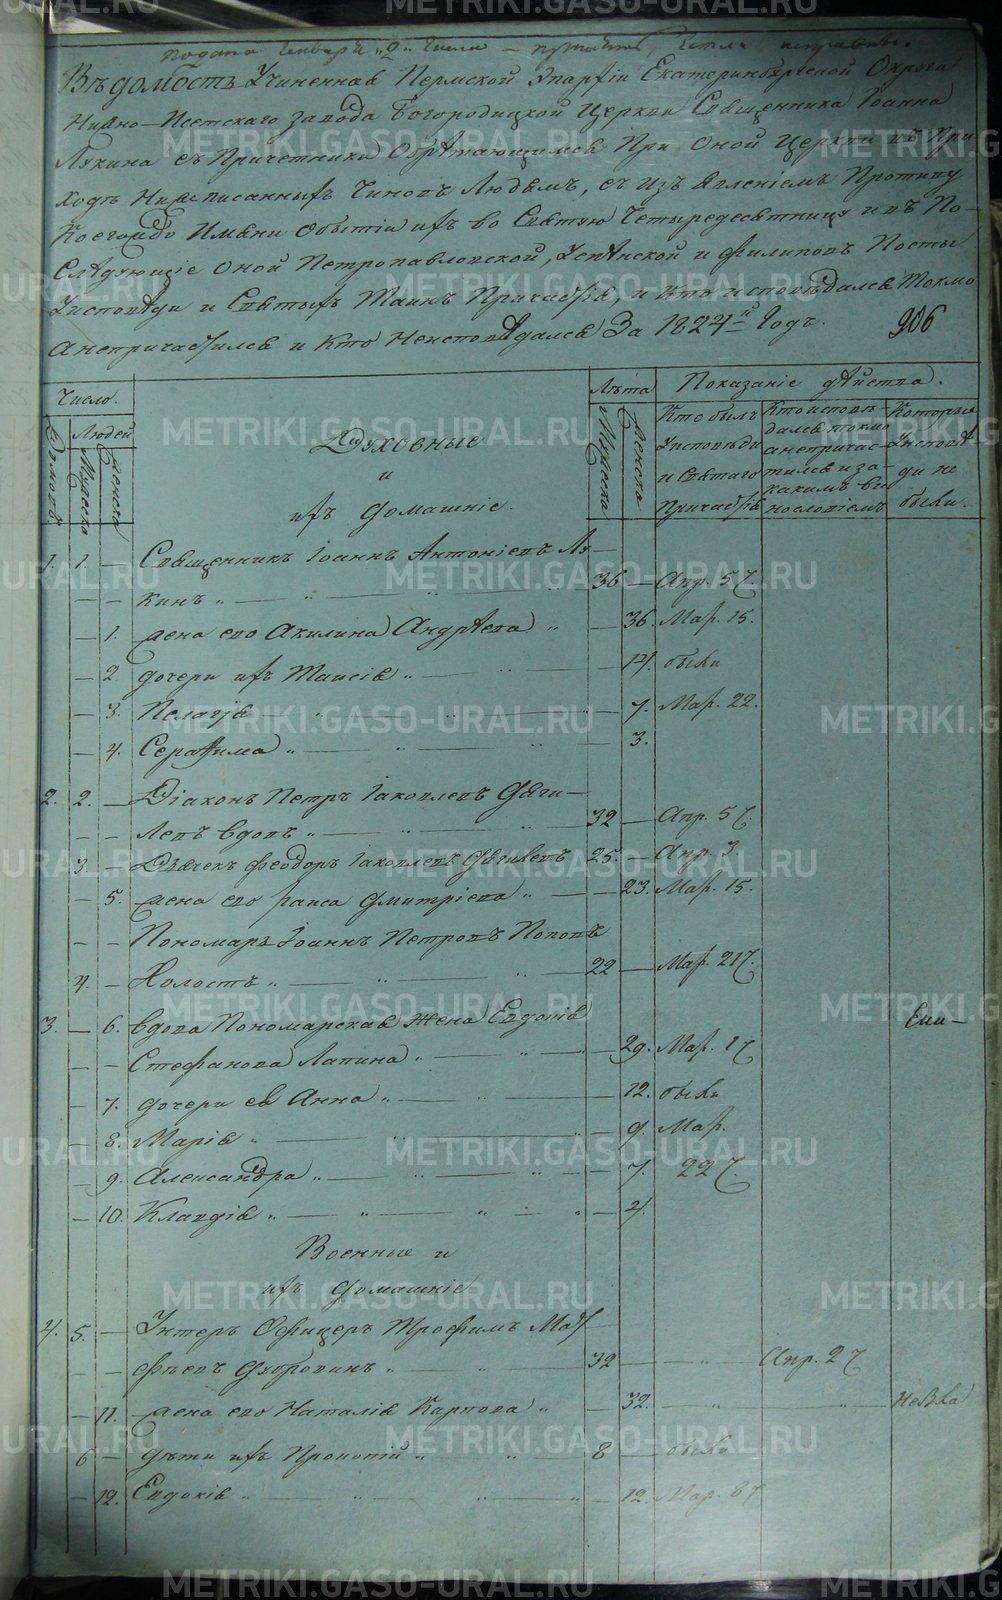 Подана Генваря "9" числа
Вѣдомость Учиненная Пермской Эпархіи Екатеринбургской Округи
Нижно-Исетскаго завода Богородицкой Церкви Священника Іоанна
Лукина съ Причетники Обрѣтающимся При Оной Церкви въ При
ходѣ Нижеписанныхъ Чиновъ Людѣмъ, съ Изъявленіемъ Противу
Коегождо Имѣни О бытіи ихъ во Святую Четыредесятницу и въ По-
слѣдующіе Оной Петропавловской, Успѣнской и Филиповъ Посты
Исповѣди и Святыхъ Таинъ Причастія, и Кто исповѣдался Токмо
а непричастился и Кто Неисповѣдался За 1827й Годъ. 906
Число. Лѣта Показаніе дѣйства.
Домовъ. Людей Мужеска Женска Духовные Мужеска Женска Кто былъ Исповѣди и Святаго Причастія Кто исповѣ- дался токмо а непричас- тился и за какимъ ви- нословіемъ Которые Исповѣ ди не были.
и
ихъ домашніе.
1. 1. — Священникъ Іоаннъ Антоніевъ Лу-
— — кинъ 36 — Апр. 5
— 1. жена его Акилина Андрѣева — 36. Мар. 15.
— 2. дочери ихъ Таисія — были
— 3. Пелагія — 7. Мар. 22.
— 4. Серафима — 3.
2. 2. — Діаконъ Петръ Іаковлевъ
— — левъ вдовъ 32 — Апр. 5
3. — Дьячекъ Феодоръ Іаковлевъ 25. — Апр. 3
— 5. жена его Раиса Дмитріева — 23. Мар. 15.
— — Пономарь Іоаннъ Петровъ Поповъ
4. — Холостъ 22 — Мар. 21
3. — 6. Вдова Пономарская Жена Евдокія
— — Стефанова Лапина — 29. Мар. 1
— 7. дочери ея Анна — 12. были
— 8. Марія — 9. Мар.
— 9. Александра — 7. 22
— 10. Клавдія — 4.
Военные и
ихъ домашніе
4. 5. — Унтеръ Офицеръ Трофимъ Мат
фѣевъ 32 — Апр. 2
— 11. жена его Наталія Карпова — 32.
6 — дѣти ихъ Прокопій 8 — были
— 12. Евдокія — 12. Мар. 8
METRIKI.GASO-URAL.RU